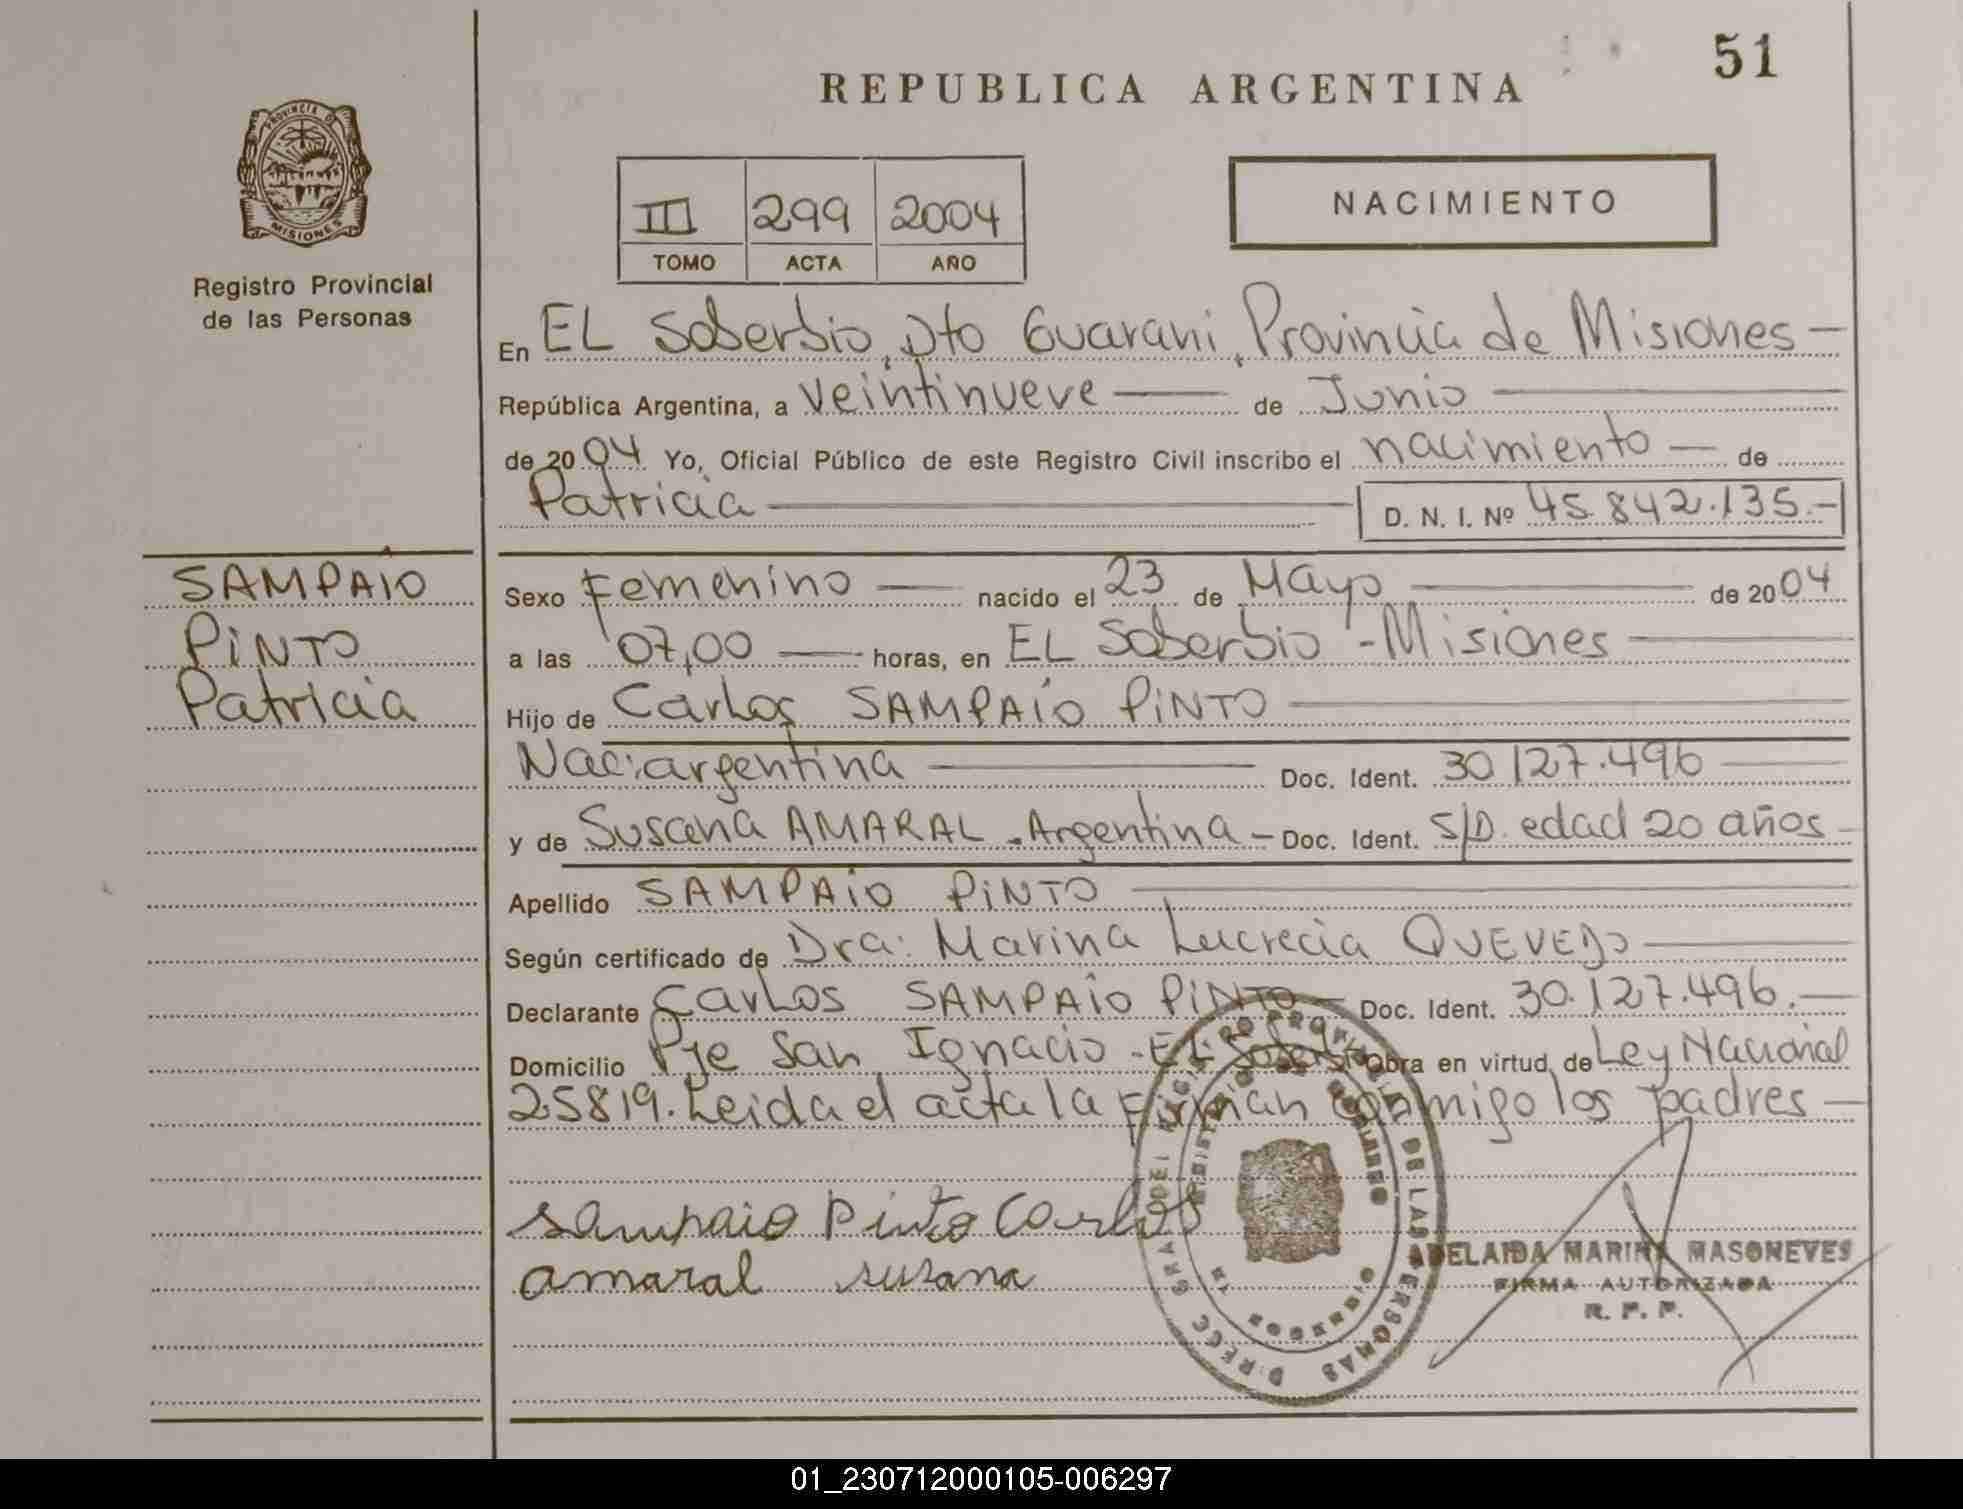 51
REPUBLICA ARGENTINA
PROVINCIA DE
MISIONES
Registro Provincial
de las Personas
III 299 2004
TOMO ACTA AÑO
NACIMIENTO
En EL Soberbio, Dto Guarani, Provincia de Misiones —
República Argentina, a veintinueve — de Junio —
de 2004 Yo, Oficial Público de este Registro Civil inscribo el nacimiento — de
Patricia — D. N. I. Nº 45.842.135.-
SAMPAIO
PINTO
Patricia
Sexo Femenino — nacido el 23 de Mayo — de 2004
a las 07,00 — horas, en EL Soberbio - Misiones —
Hijo de Carlos SAMPAIO PINTO —
Nac: argentina — Doc. Ident. 30.127.496 —
y de Susana AMARAL . Argentina — Doc. Ident. S/D. edad 20 años —
Apellido SAMPAIO PINTO —
Según certificado de Dra: Marina Lucrecia QUEVEDO —
Declarante Carlos SAMPAIO PINTO — Doc. Ident. 30.127.496. —
Domicilio Pje San Ignacio - EL Soberbio Obra en virtud de Ley Nacional
25819. Leida el acta la firman conmigo los padres —
sampaio Pinto Carlos
amaral susana
ADELAIDA MARINA MASONEVES
FIRMA AUTORIZADA
R. P. P.
01_230712000105-006297